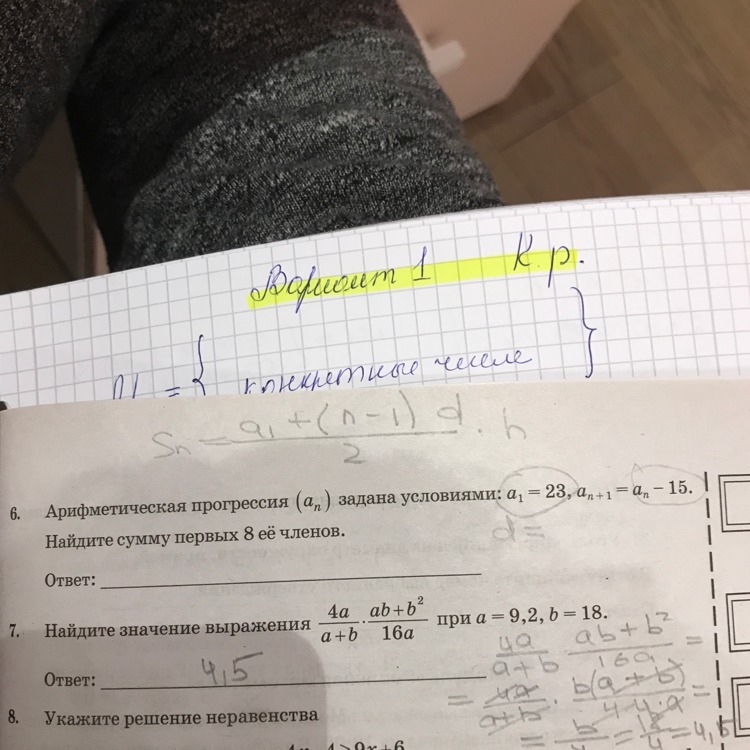 Вариант 1 К.р.
= { конкретные числа }
Sn = a₁ + (n - 1) d / 2 · n
6. Арифметическая прогрессия (aₙ) задана условиями: a₁ = 23, aₙ₊₁ = aₙ − 15.
Найдите сумму первых 8 её членов.
d =
Ответ:
7. Найдите значение выражения 4a/(a+b) · (ab+b²)/16a при a = 9,2, b = 18.
4a/(a+b) · (ab+b²)/16a =
Ответ: 4,5
= 4a/(a+b) · b(a+b)/(4·4·a) =
8. Укажите решение неравенства
= b/4 = 18/4 = 4,5